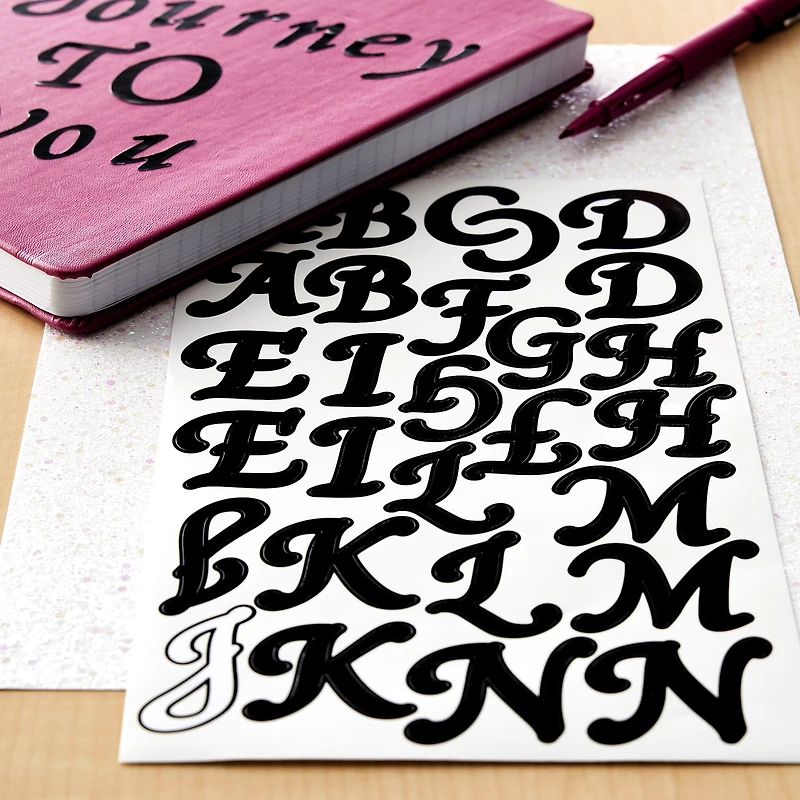 Journey
TO
you
A B C D
A B F D
E I G H
E I G F H
L M
J K L M
J K N N